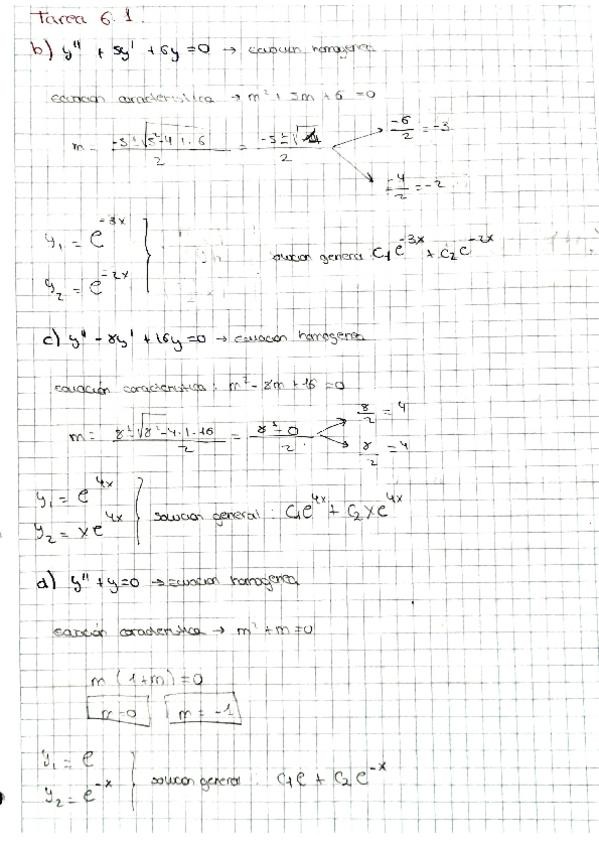 Tarea 6.1.
b) y'' + 5y' + 6y = 0 → ecuación homogenea
ecuación caracteristica → m² + 5m + 6 = 0
m = (-5 ± √(5²-4·1·6))/2 = (-5 ± √1)/2
-6/2 = -3
-4/2 = -2
y₁ = e^(-3x)
y₂ = e^(-2x)
solucion general C₁e^(-3x) + C₂e^(-2x)
c) y'' - 8y' + 16y = 0 → ecuacion homogenea
ecuación caracteristica : m² - 8m + 16 = 0
m = (8 ± √(8²-4·1·16))/2 = (8 ± 0)/2
8/2 = 4
8/2 = 4
y₁ = e^(4x)
y₂ = xe^(4x)
solucion general : C₁e^(4x) + C₂xe^(4x)
d) y'' + y = 0 → ecuacion homogenea
ecuación caracteristica → m² + m = 0
m (1+m) = 0
m=0 m = -1
y₁ = e
y₂ = e^(-x)
solucion general : C₁e + C₂e^(-x)